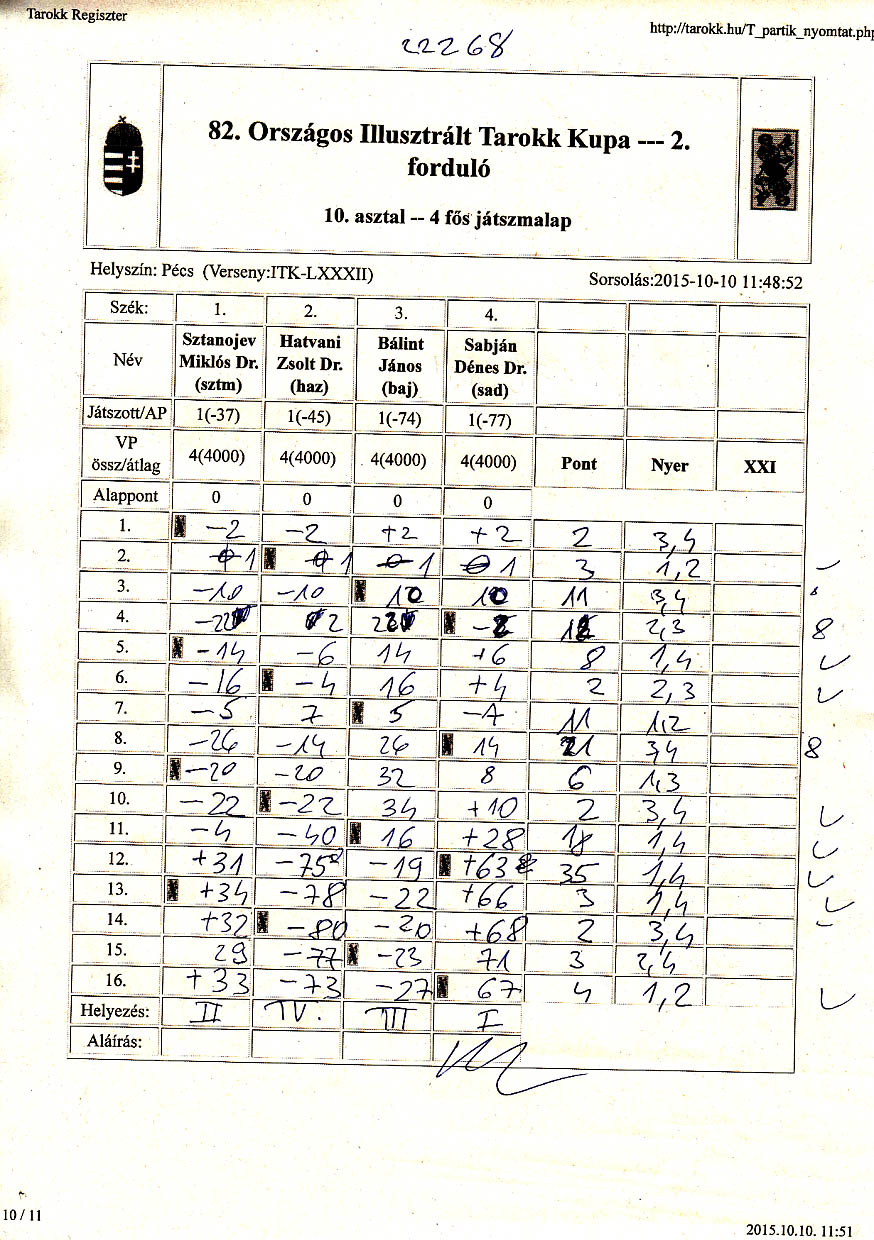 Tarokk Regiszter
http://tarokk.hu/T_partik_nyomtat.php
22268
82. Országos Illusztrált Tarokk Kupa --- 2.
forduló
10. asztal -- 4 fős játszmalap
Helyszín: Pécs (Verseny:ITK-LXXXII)
Sorsolás:2015-10-10 11:48:52
Szék: 1. 2. 3. 4.
Név Sztanojev Miklós Dr. (sztm) Hatvani Zsolt Dr. (haz) Bálint János (baj) Sabján Dénes Dr. (sad)
Játszott/AP 1(-37) 1(-45) 1(-74) 1(-77)
VP össz/átlag 4(4000) 4(4000) 4(4000) 4(4000) Pont Nyer XXI
Alappont 0 0 0 0
1. -2 -2 +2 +2 2 3,4
2. 1 1 1 1 3 1,2
3. -10 -10 10 10 11 3,4
4. -22 2 22 -2 12 2,3 8
5. -14 -6 14 +6 8 1,4
6. -16 -4 16 +4 2 2,3
7. -5 7 5 -7 11 1,2
8. -26 -14 26 14 21 34 8
9. -20 -20 32 8 6 1,3
10. -22 -22 34 +10 2 3,4
11. -4 -40 16 +28 18 1,4
12. +31 -75 -19 +63 35 1,4
13. +34 -78 -22 +66 3 1,4
14. +32 -80 -20 +68 2 3,4
15. 29 -77 -23 71 3 2,4
16. +33 -73 -27 67 4 1,2
Helyezés: II IV. III I
Aláírás:
10 / 11
2015.10.10. 11:51